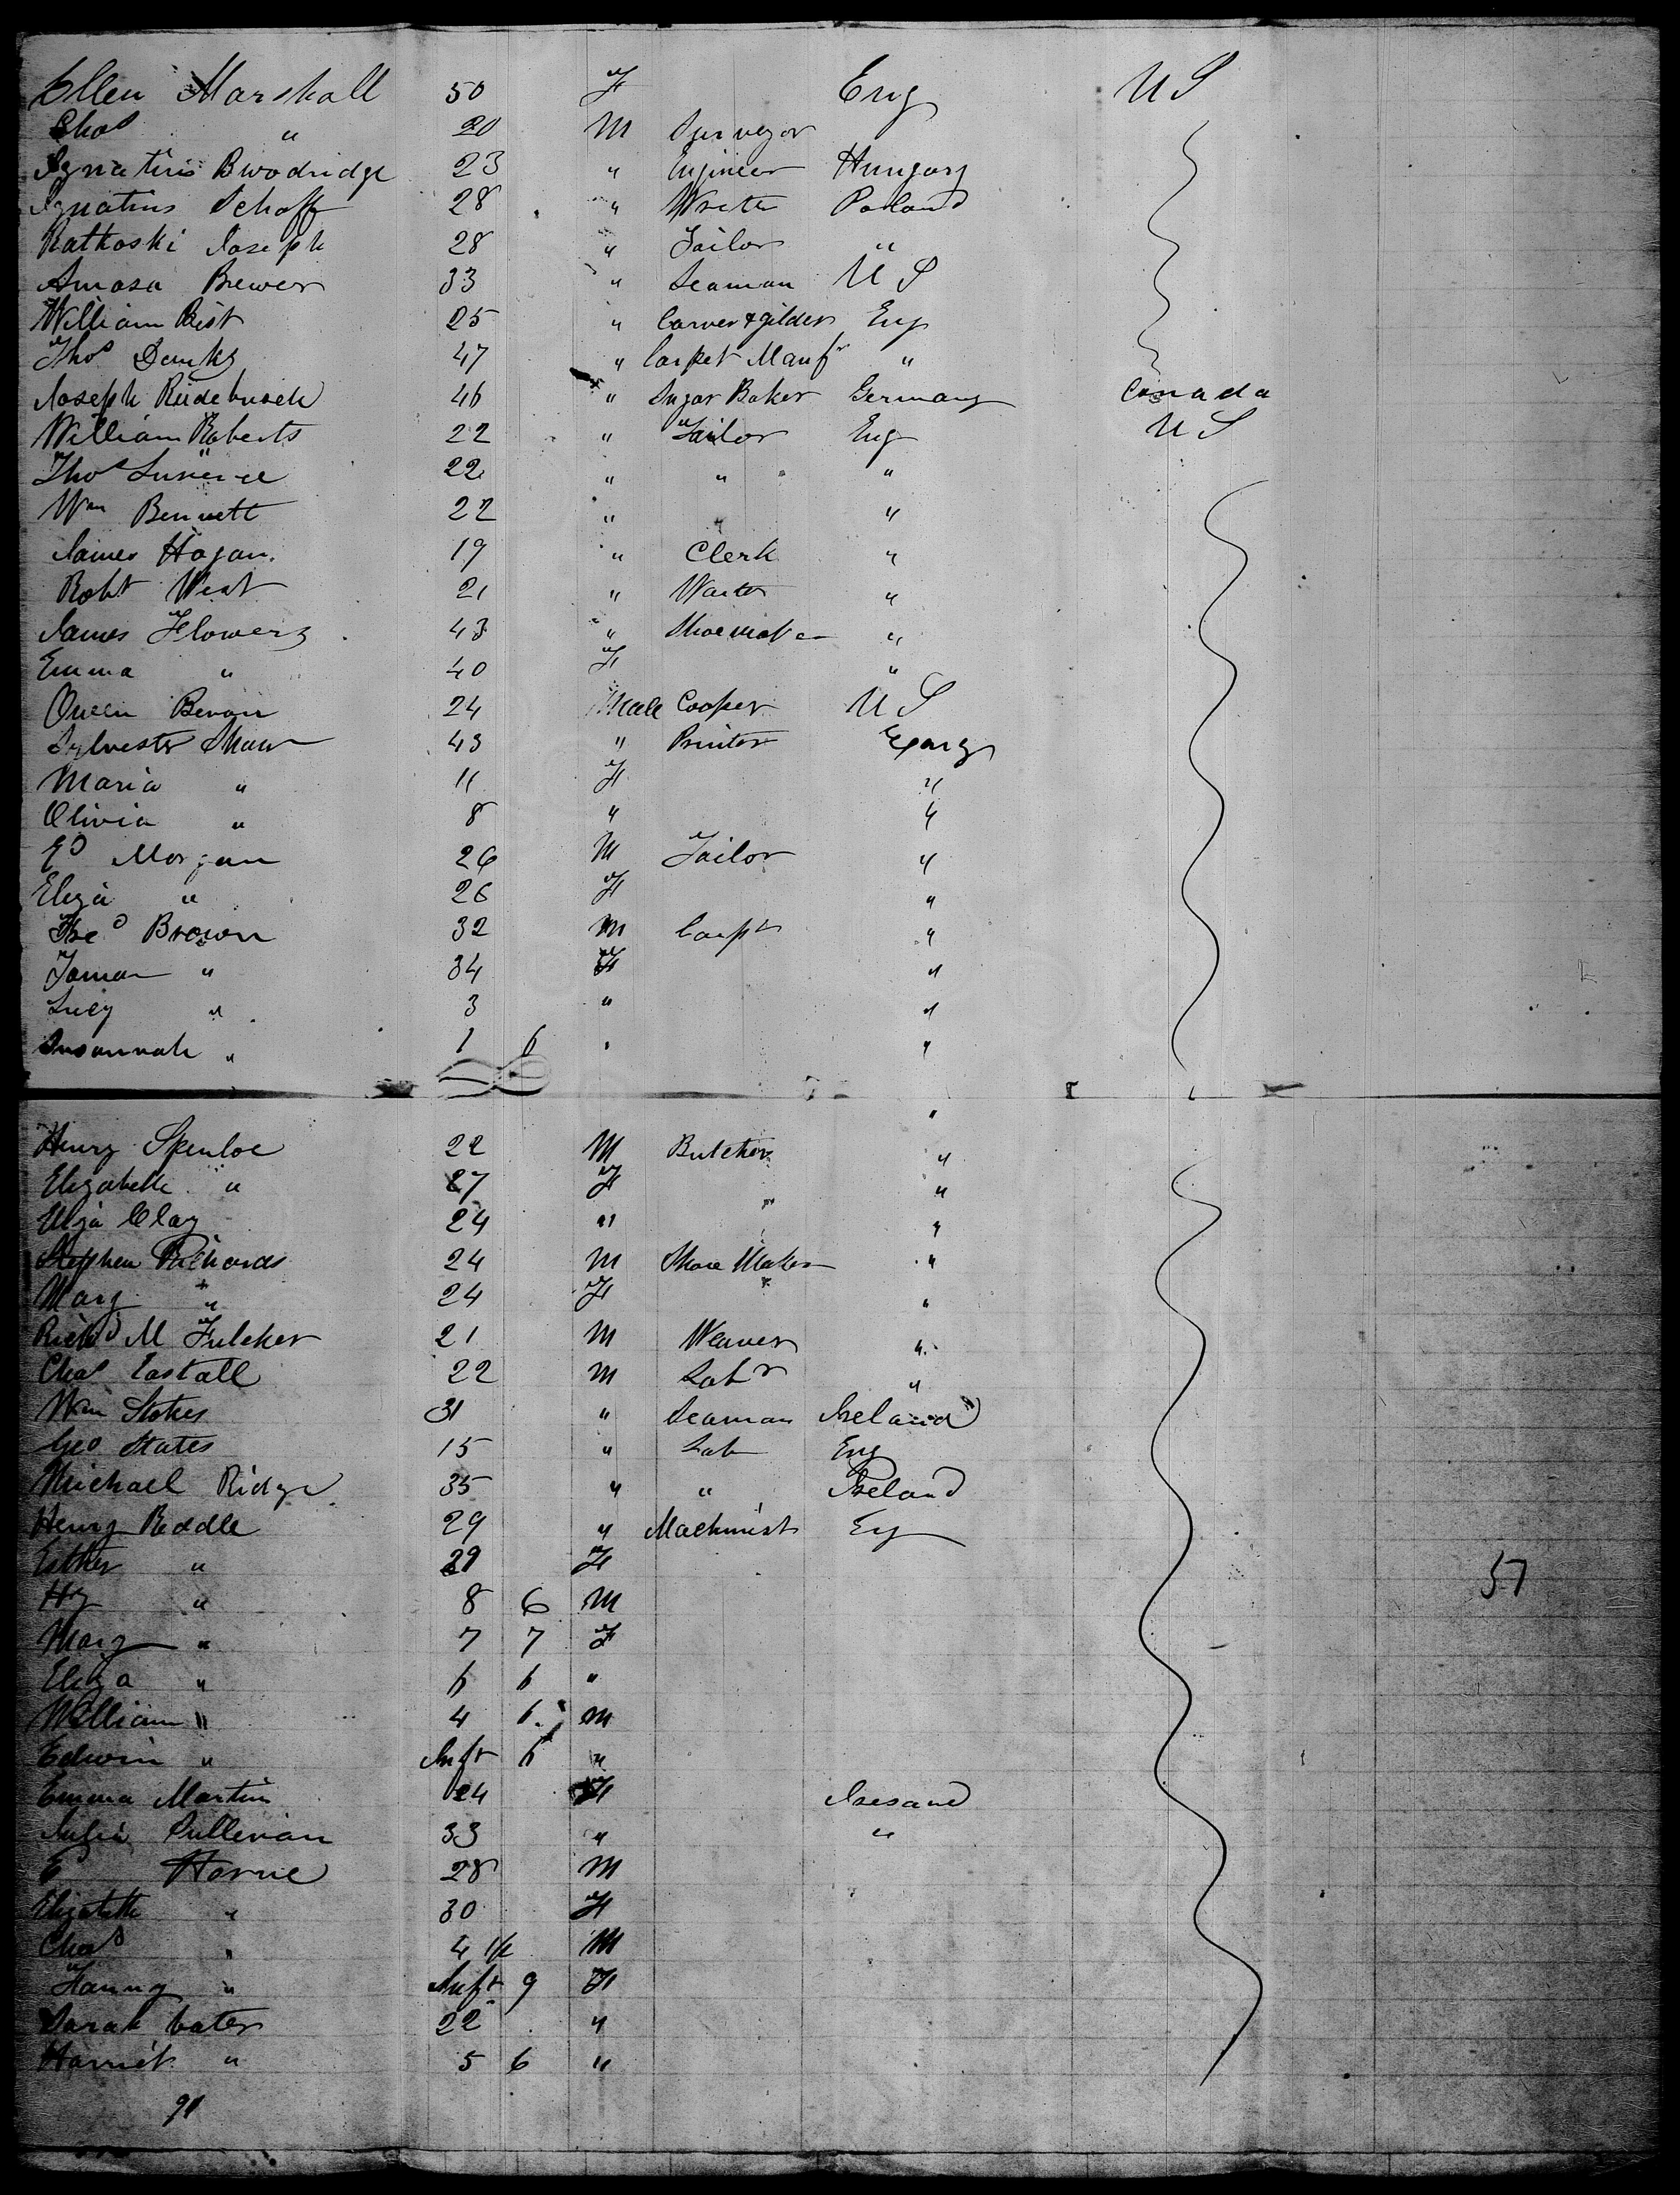 Ellen Marshall 50 F Eng U S
Chas " 20 M Surveyor
Ignatius Bwodridge 23 " Engineer Hungary
Ignatius Schaff 28 " Writer Poland
Ratkoski Joseph 28 " Tailor "
Amasa Brewer 33 " Seaman U S
William Rist 25 " Carver & gilder Eng
Thos 47 " Carpet Manfr "
Joseph Rudebusch 46 " Sugar Baker Germany Canada
William Roberts 22 " Tailor Eng U S
Thos 22 " " "
Wm Bennett 22 " " "
James Hogan 19 " Clerk "
Robt West 21 " Waiter "
James Flowers 43 " Shoemaker "
Emma " 40 F "
Owen Bevan 24 Male Cooper U S
Sylvester Shaw 43 " Printer Eng
Maria " 11 F "
Olivia " 8 " "
Ed Morgan 26 M Tailor "
Eliza " 26 F "
Fred Brown 32 M Carpr "
Tamar " 34 F "
Lucy " 3 " "
Susannah " 1 6 " "
"
Henry Spenloe 22 M Butcher "
Elizabeth " 27 F " "
Eliza Clay 24 " "
Stephen Richards 24 M Shoe Maker "
Mary " 24 F " "
Richd M Fulcher 21 M Weaver "
Chas Eastall 22 M Labr "
Wm Stokes 31 " Seaman Ireland
Geo States 15 " Lab Eng
Michael Ridge 35 " " Ireland
Henry Beddle 29 " Machinist Eng
Esther " 29 F
Hy " 8 6 M
Mary " 7 7 F
Eliza " 6 6 "
William " 4 6 M
Edwin " Inft 6 "
Emma Martin 24 F Ireland
Julia Sullivan 33 " "
E Horne 28 M
Elizabeth " 30 F
Chas " 4 1/2 M
Fanny " Inft 9 F
Sarah Cater 22 "
Harriet " 5 6 "
51
91